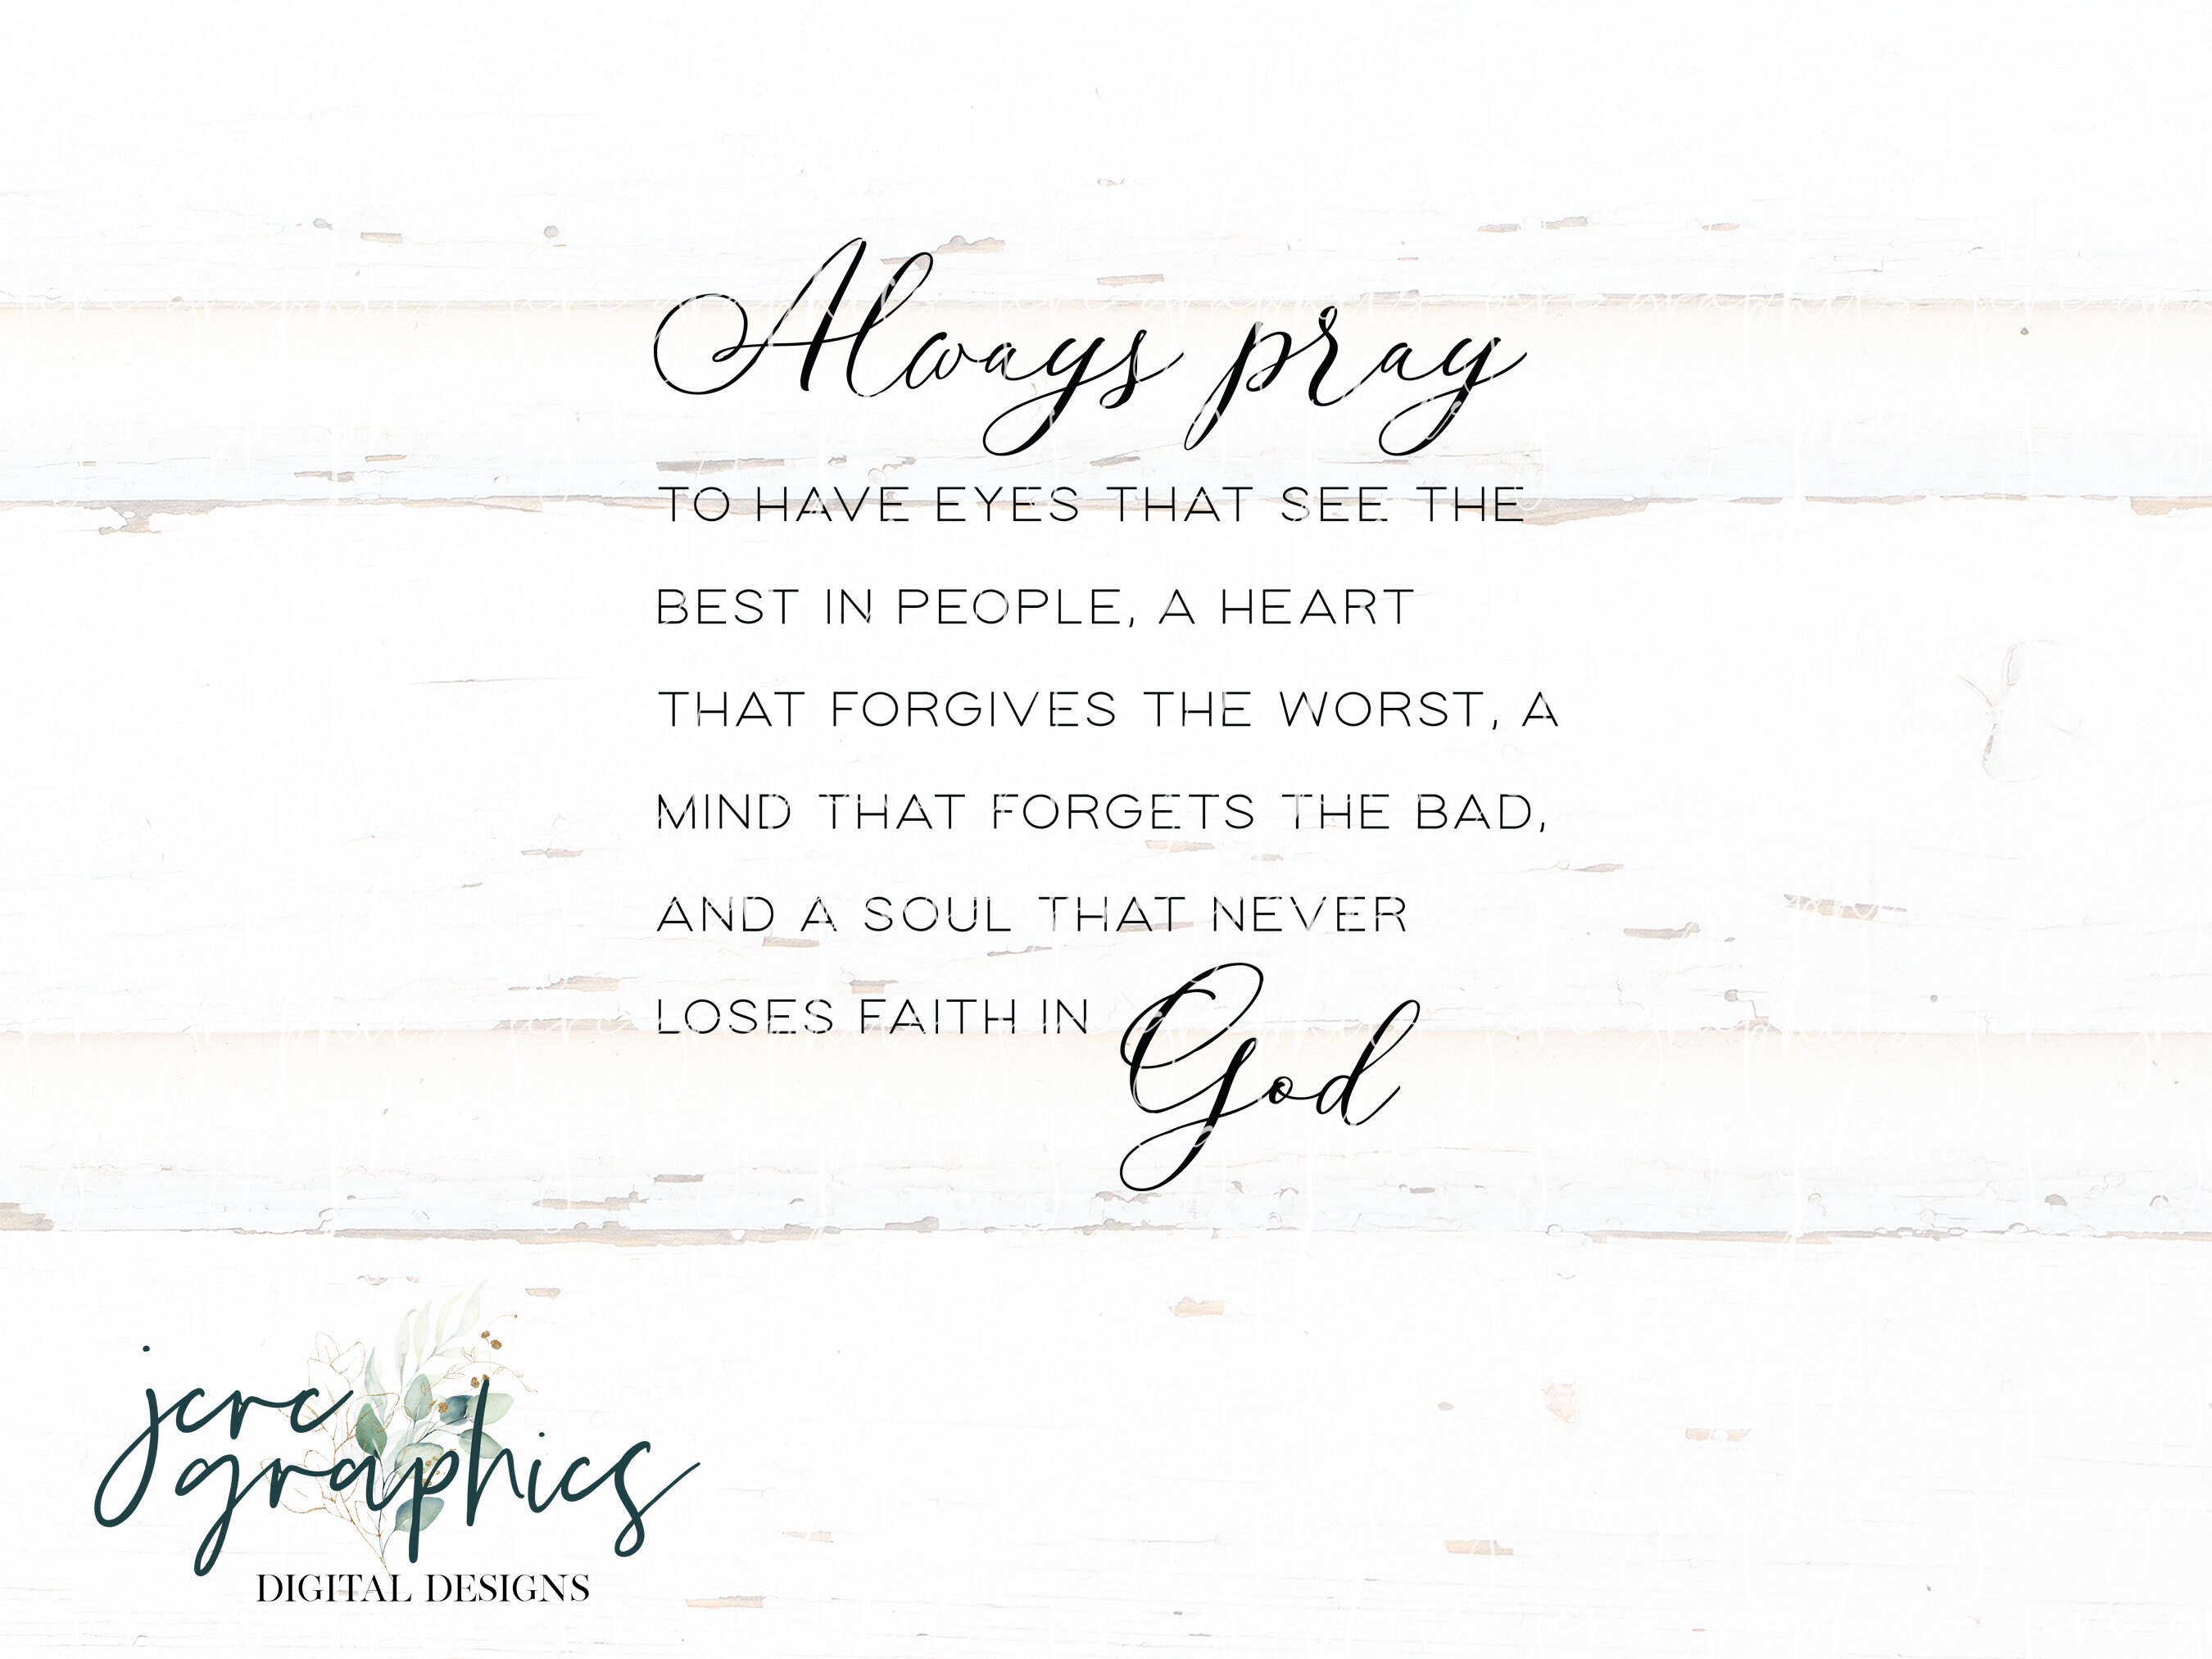 Always pray
TO HAVE EYES THAT SEE THE
BEST IN PEOPLE, A HEART
THAT FORGIVES THE WORST, A
MIND THAT FORGETS THE BAD,
AND A SOUL THAT NEVER
LOSES FAITH IN God
jcrc
graphics
DIGITAL DESIGNS